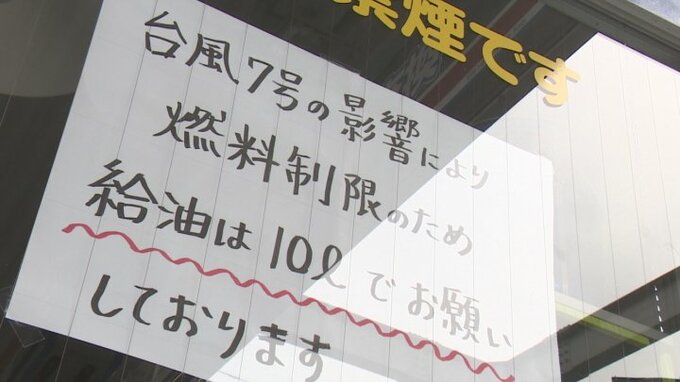 禁煙です
台風7号の影響により
燃料制限のため
給油は10ℓでお願い
しております